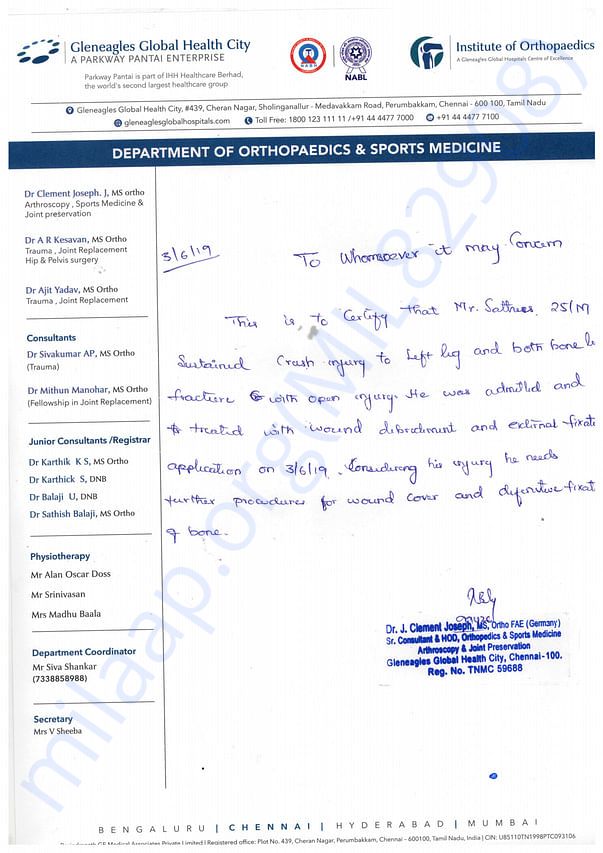 Gleneagles Global Health City
A PARKWAY PANTAI ENTERPRISE
Parkway Pantai is part of IHH Healthcare Berhad,
the world's second largest healthcare group
NABH
NABL
Institute of Orthopaedics
A Gleneagles Global Hospitals Centre of Excellence
Gleneagles Global Health City, #439, Cheran Nagar, Sholinganallur - Medavakkam Road, Perumbakkam, Chennai - 600 100, Tamil Nadu
gleneaglesglobalhospitals.com Toll Free: 1800 123 111 11 /+91 44 4477 7000 +91 44 4477 7100
DEPARTMENT OF ORTHOPAEDICS & SPORTS MEDICINE
Dr Clement Joseph. J, MS ortho
Arthroscopy , Sports Medicine &
Joint preservation
Dr A R Kesavan, MS Ortho
Trauma , Joint Replacement
Hip & Pelvis surgery
Dr Ajit Yadav, MS Ortho
Trauma , Joint Replacement
Consultants
Dr Sivakumar AP, MS Ortho
(Trauma)
Dr Mithun Manohar, MS Ortho
(Fellowship in Joint Replacement)
Junior Consultants /Registrar
Dr Karthik K S, MS Ortho
Dr Karthick S, DNB
Dr Balaji U, DNB
Dr Sathish Balaji, MS Ortho
Physiotherapy
Mr Alan Oscar Doss
Mr Srinivasan
Mrs Madhu Baala
Department Coordinator
Mr Siva Shankar
(7338858988)
Secretary
Mrs V Sheeba
3/6/19
To Whomsoever it may Concern
This is to Certify that Mr. 25/M
Sustained Crush injury to Left leg and both bone
fracture with open injury. He was admitted and
treated with wound debridment and external fixat
application on 3/6/19. Considering his injury he needs
further procedures for wound cover and definitive fixat
of bone.
Dr. J. Clement Joseph, MS, Ortho FAE (Germany)
Sr. Consultant & HOD, Orthopedics & Sports Medicine
Arthroscopy & Joint Preservation
Gleneagles Global Health City, Chennai-100.
Reg. No. TNMC 59688
BENGALURU | CHENNAI | HYDERABAD | MUMBAI
Registered office: Plot No. 439, Cheran Nagar, Perumbakkam, Chennai - 600100, Tamil Nadu, India | CIN: U85110TN1998PTC093106
milaap.org(MIL82908)